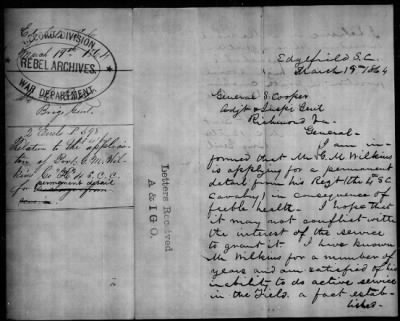 March 19th 1864
RECORD DIVISION
REBEL ARCHIVES
WAR DEPARTMENT
Brig Genl.
2 Encls
Relative to the applica-
tion of
for permanent detail
Letters Received
A & I G O.
Edgefield S.C.
March 19th 1864
General S. Cooper
Adjt & Inspr Genl
Richmond Va
General-
I am in-
formed that Mr. C. M Wilkins
is applying for a permanent
detail from his Regt (the 4th S.C
Cavalry) in consequence of
feeble health. I hope that
it may not conflict with
the interest of the service
to grant it. I have known
Mr Wilkins for a number of
years and am satisfied of his
inability to do active service
in the Field. a fact estab-
lishes